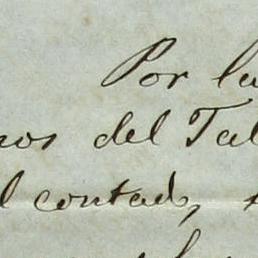 Por la
nos del Tal
l contado,